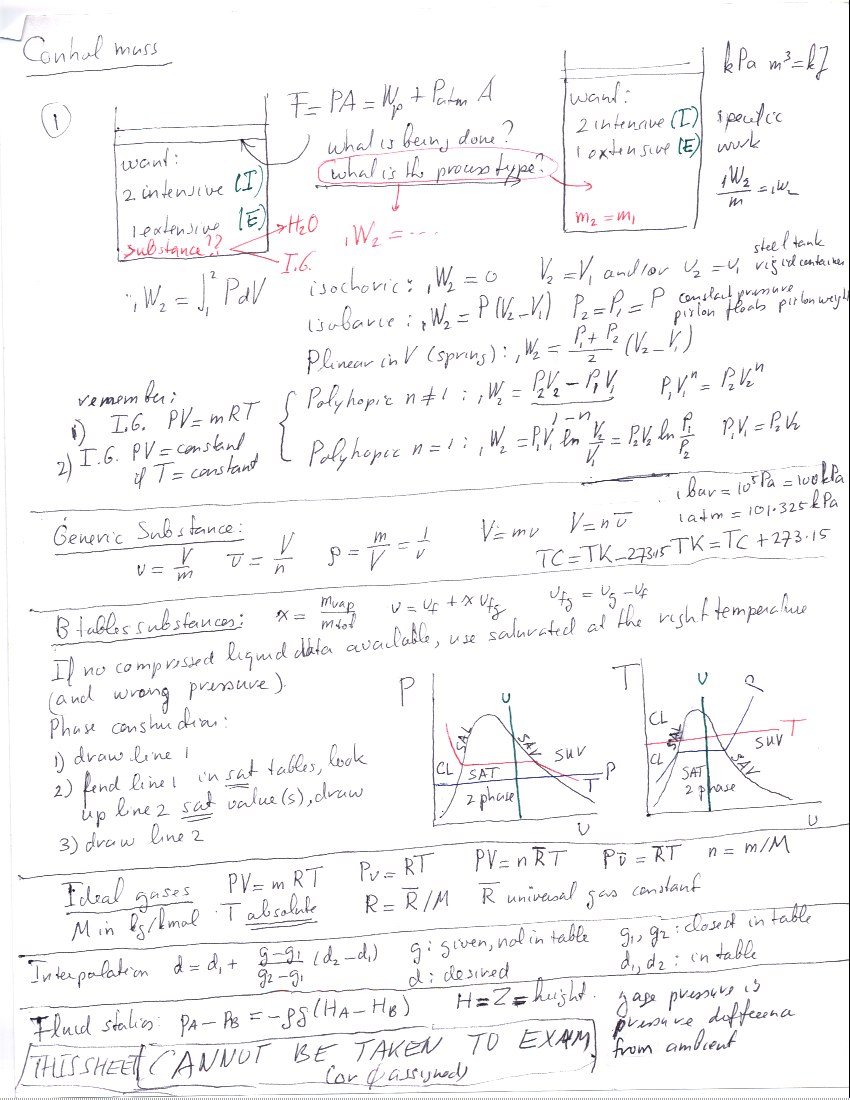 Control mass
kPa m³=kJ
①
F = PA = Wp + Patm A
what is being done?
what is the process type?
want:
2 intensive (I)
1 extensive (E)
substance??
H₂O
I.G.
₁W₂ = ...
want:
2 intensive (I)
1 extensive (E)
m₂ = m₁
specific
work
₁W₂/m = ₁w₂
₁W₂ = ∫₁² PdV
isochoric: ₁W₂ = 0 V₂ = V₁ and/or v₂ = v₁ steel tank rigid container
isobaric: ₁W₂ = P(V₂-V₁) P₂ = P₁ = P constant pressure piston floats piston weight
P linear in V (spring): ₁W₂ = (P₁+P₂)/2 (V₂-V₁)
remember:
1) I.G. PV = mRT
2) I.G. PV = constant
if T = constant
Polytropic n≠1: ₁W₂ = (P₂V₂ - P₁V₁)/(1-n) P₁V₁ⁿ = P₂V₂ⁿ
Polytropic n=1: ₁W₂ = P₁V₁ ln V₂/V₁ = P₂V₂ ln P₁/P₂ P₁V₁ = P₂V₂
Generic Substance:
v = V/m v̄ = V/n ρ = m/V = 1/v V = mv V = n v̄
1 bar = 10⁵Pa = 100kPa
1 atm = 101.325kPa
TC = TK - 273.15 TK = TC + 273.15
B tables substances: x = mvap/mtot v = vf + x vfg vfg = vg - vf
If no compressed liquid data available, use saturated at the right temperature
(and wrong pressure).
Phase construction:
1) draw line 1
2) fend line 1 in sat tables, look
up line 2 sat value(s), draw
3) draw line 2
P
υ
SAL
SAV
CL
SUV
SAT
2 phase
P
T
υ
T
υ
P
CL
SAL
T
CL
SUV
SAT
2 phase
SAV
υ
Ideal gases PV = mRT Pv = RT PV = n R̄T Pv̄ = R̄T n = m/M
M in kg/kmol T absolute R = R̄/M R̄ universal gas constant
Interpolation d = d₁ + (g-g₁)/(g₂-g₁) (d₂-d₁) g: given, not in table g₁, g₂: closest in table
d: desired d₁, d₂: in table
Fluid statics: pA - pB = -ρg(HA - HB) H = Z = height. gage pressure is
pressure difference
from ambient
THIS SHEET CANNOT BE TAKEN TO EXAM
(or assigned)